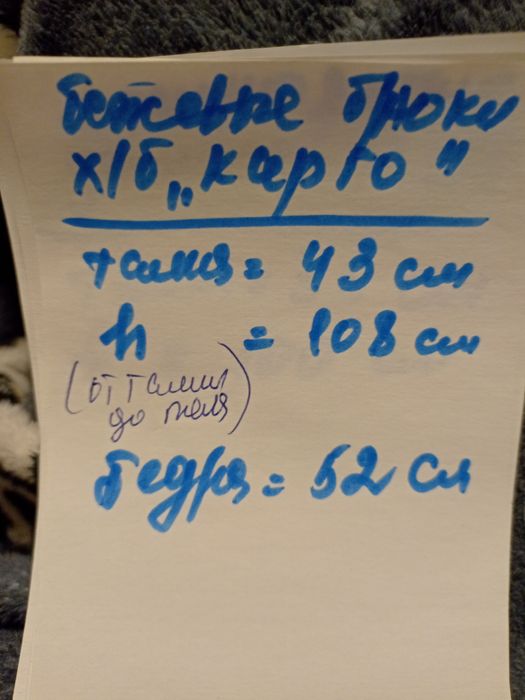 бежевые брюки
х/б „карго"
талия = 43 см
h = 108 см
(от талии
до пола)
бедра = 52 см